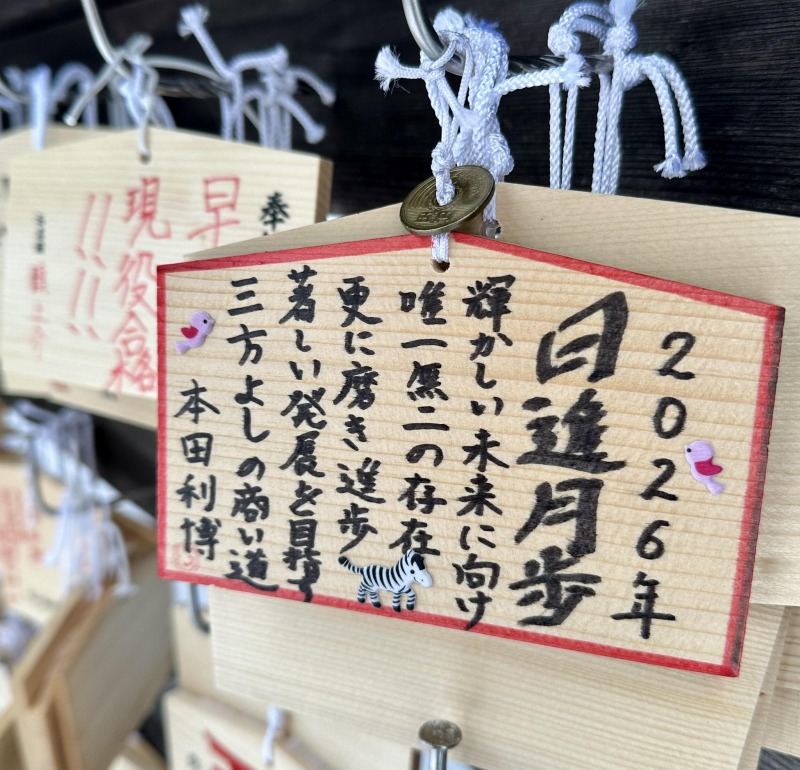 2026年
日進月歩
輝かしい未来に向け
唯一無二の存在
更に磨き進歩
著しい発展を目指す
三方よしの商い道
本田利博
奉
早
現役合格
!!!!